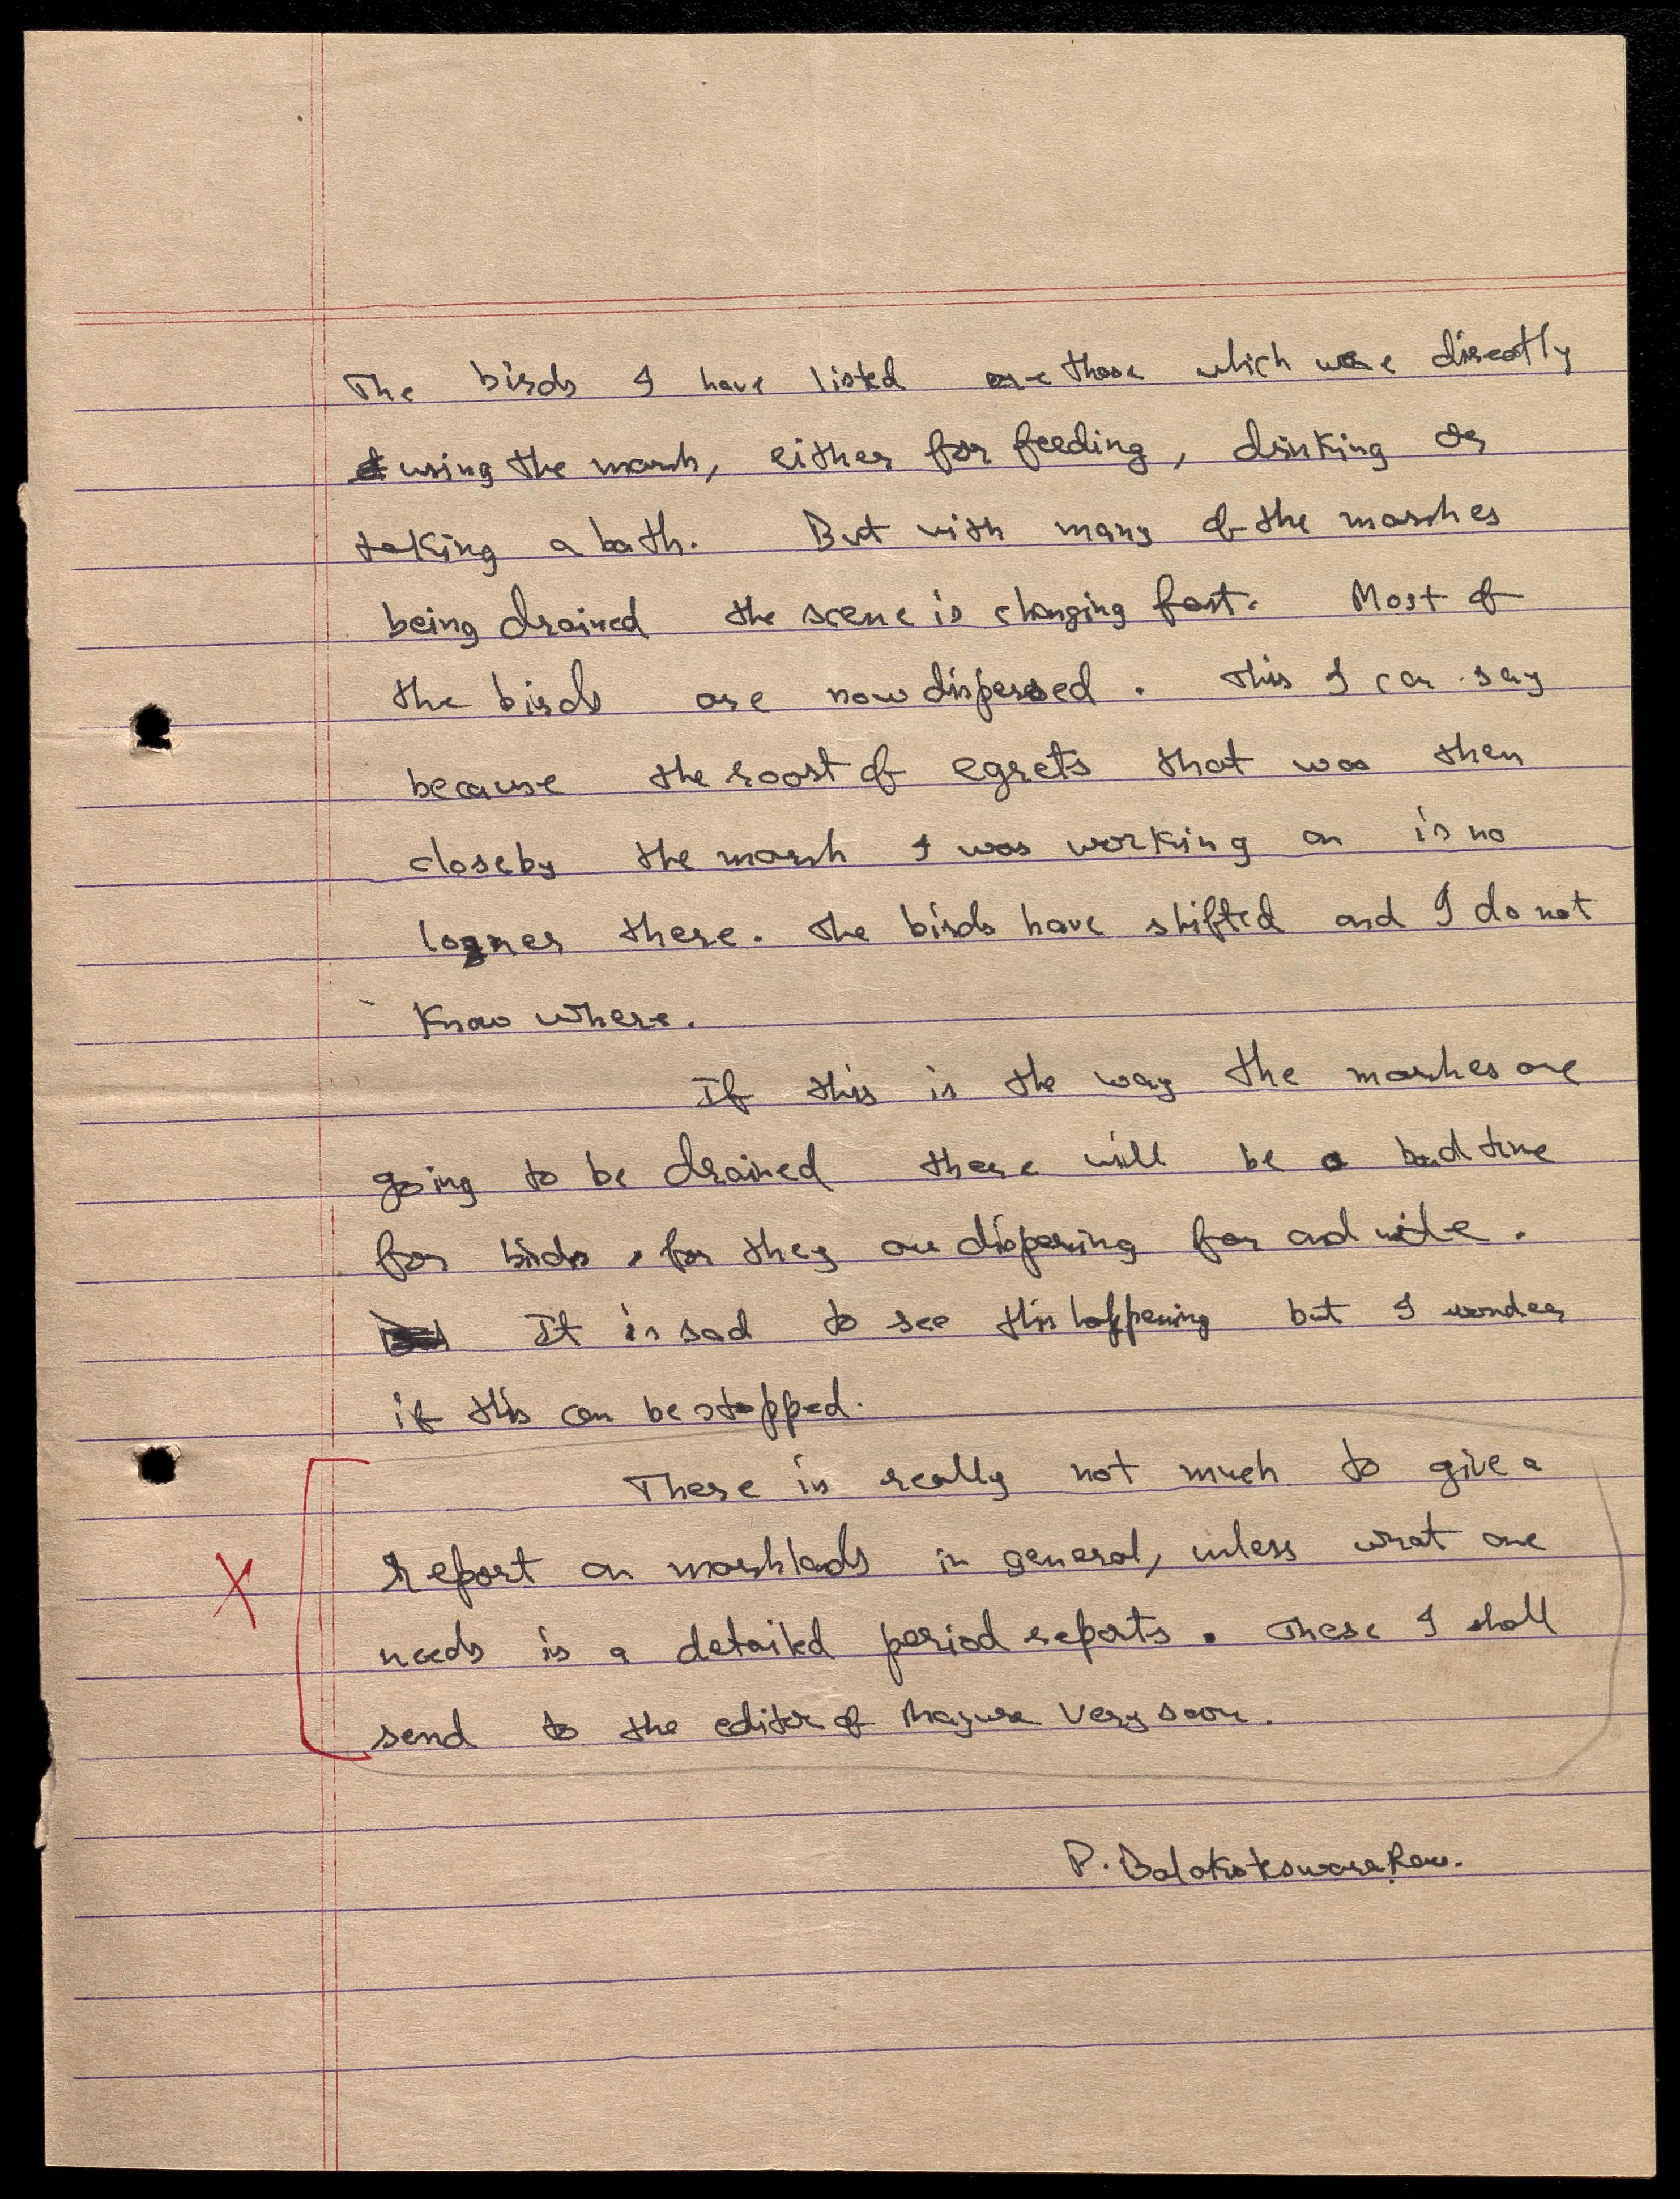 The birds I have listed are those which were directly
using the marsh, either for feeding, drinking or
taking a bath. But with many of the marshes
being drained the scene is changing fast. Most of
the birds are now dispersed. This I can say
because the roost of egrets that was then
closeby the marsh I was working on is no
logner there. The birds have shifted and I do not
know where.
If this is the way the marshes are
going to be drained there will be a bad time
for birds, for they are dispering far and wide.
It is sad to see this happening but I wonder
if this can be stopped.
There is really not much to give a
report on marshlads in general, unless what one
needs is a detailed period reports. These I shall
send to the editor of Mayura very soon.
X
P. Balakoteswara Rao.